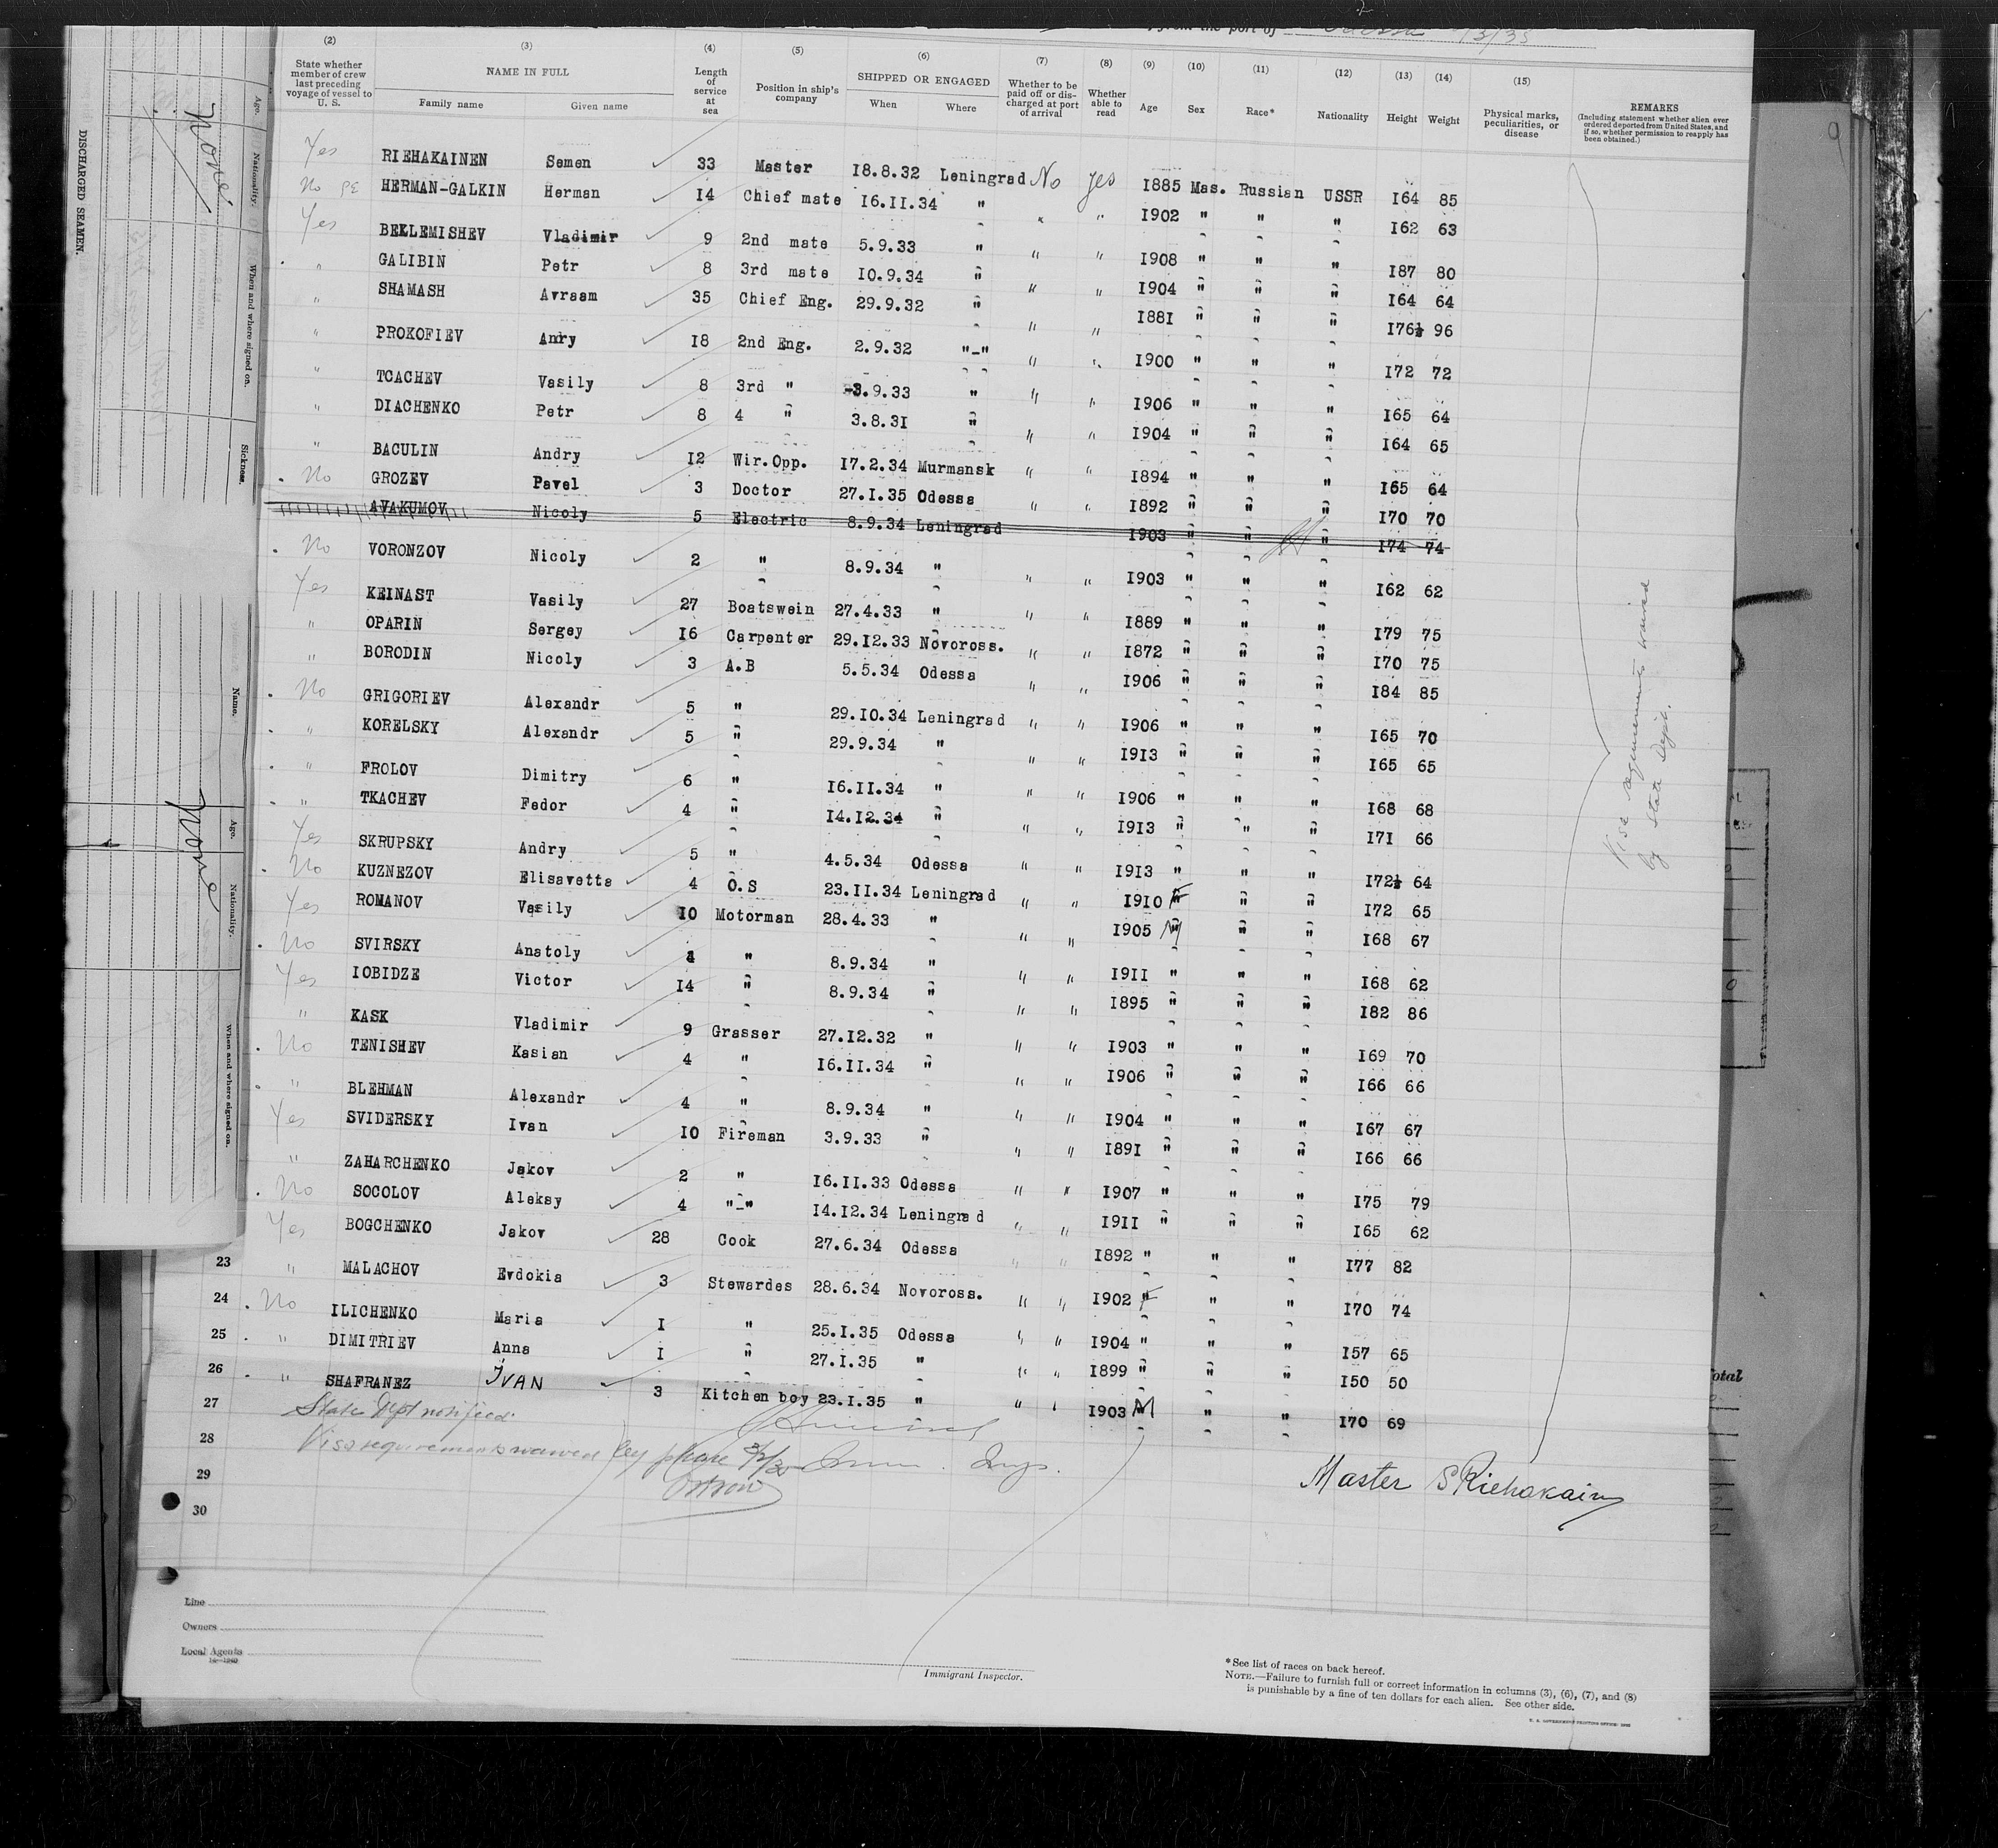 from the port of Odessa
(2) (3) (4) (5) (6) (7) (8) (9) (10) (11) (12) (13) (14) (15)
State whether member of crew last preceding voyage of vessel to U. S. NAME IN FULL Family name Given name Length of service at sea Position in ship's company SHIPPED OR ENGAGED When Where Whether to be paid off or discharged at port of arrival Whether able to read Age Sex Race* Nationality Height Weight Physical marks, peculiarities, or disease REMARKS
(Including statement whether alien ever ordered deported from United States, and if so, whether permission to reapply has been obtained.)
Yes RIEHAKAINEN Semen 33 Master 18.8.32 Leningrad No yes 1885 Mas. Russian USSR 164 85
No HERMAN-GALKIN Herman 14 Chief mate 16.11.34 " " " 1902 " " " 162 63
Yes BEKLEMISHEV Vladimir 9 2nd mate 5.9.33 " " " 1908 " " " 187 80
" GALIBIN Petr 8 3rd mate 10.9.34 " " " 1904 " " " 164 64
" SHAMASH Avraam 35 Chief Eng. 29.9.32 " " " 1881 " " " 176½ 96
" PROKOFIEV Anry 18 2nd Eng. 2.9.32 "-" " " 1900 " " " 172 72
" TCACHEV Vasily 8 3rd " 3.9.33 " " " 1906 " " " 165 64
" DIACHENKO Petr 8 4 " 3.8.31 " " " 1904 " " " 164 65
" BACULIN Andry 12 Wir.Opp. 17.2.34 Murmansk " " 1894 " " " 165 64
No GROZEV Pavel 3 Doctor 27.1.35 Odessa " " 1892 " " " 170 70
AVAKUMOV Nicoly 5 Electric 8.9.34 Leningrad 1903 " " " 174 74
No VORONZOV Nicoly 2 " 8.9.34 " " " 1903 " " " 162 62
Yes KEINAST Vasily 27 Boatswein 27.4.33 " " " 1889 " " " 179 75
" OPARIN Sergey 16 Carpenter 29.12.33 Novoross. " " 1872 " " " 170 75
" BORODIN Nicoly 3 A.B 5.5.34 Odessa " " 1906 " " " 184 85
No GRIGORIEV Alexandr 5 " 29.10.34 Leningrad " " 1906 " " " 165 70
" KORELSKY Alexandr 5 " 29.9.34 " " " 1913 " " " 165 65
" FROLOV Dimitry 6 " 16.11.34 " " " 1906 " " " 168 68
" TKACHEV Fedor 4 " 14.12.34 " " " 1913 " " " 171 66
Yes SKRUPSKY Andry 5 " 4.5.34 Odessa " " 1913 " " " 172½ 64
No KUZNEZOV Elisavetta 4 O.S 23.11.34 Leningrad " " 1910 F " " 172 65
Yes ROMANOV Vasily 10 Motorman 28.4.33 " " " 1905 M " " 168 67
No SVIRSKY Anatoly 4 " 8.9.34 " " " 1911 " " " 168 62
Yes IOBIDZE Victor 14 " 8.9.34 " " " 1895 " " " 182 86
" KASK Vladimir 9 Grasser 27.12.32 " " " 1903 " " " 169 70
No TENISHEV Kasian 4 " 16.11.34 " " " 1906 " " " 166 66
" BLEHMAN Alexandr 4 " 8.9.34 " " " 1904 " " " 167 67
Yes SVIDERSKY Ivan 10 Fireman 3.9.33 " " " 1891 " " " 166 66
" ZAHARCHENKO Jakov 2 " 16.11.33 Odessa " " 1907 " " " 175 79
No SOCOLOV Aleksy 4 "-" 14.12.34 Leningrad " " 1911 " " " 165 62
Yes BOGCHENKO Jakov 28 Cook 27.6.34 Odessa " " 1892 " " " 177 82
23 " MALACHOV Evdokia 3 Stewardes 28.6.34 Novoross. " " 1902 F " " 170 74
24 No ILICHENKO Maria 1 " 25.1.35 Odessa " " 1904 " " " 157 65
25 " DIMITRIEV Anna 1 " 27.1.35 " " " 1899 " " " 150 50
26 " SHAFRANEZ IVAN 3 Kitchen boy 23.1.35 " " " 1903 M " " 170 69
27 State Dept notified.
28 Visa requirements waived by phone
29
30
Master S Riehakain
Vise requirements waived
by State Dept.
Line
Owners
Local Agents
Immigrant Inspector.
* See list of races on back hereof.
NOTE.—Failure to furnish full or correct information in columns (3), (6), (7), and (8)
is punishable by a fine of ten dollars for each alien. See other side.
DISCHARGED SEAMEN.
Age. Nationality. When and where signed on. Sickness.
None
Name. Age. Nationality. When and where signed on.
None
9
otal